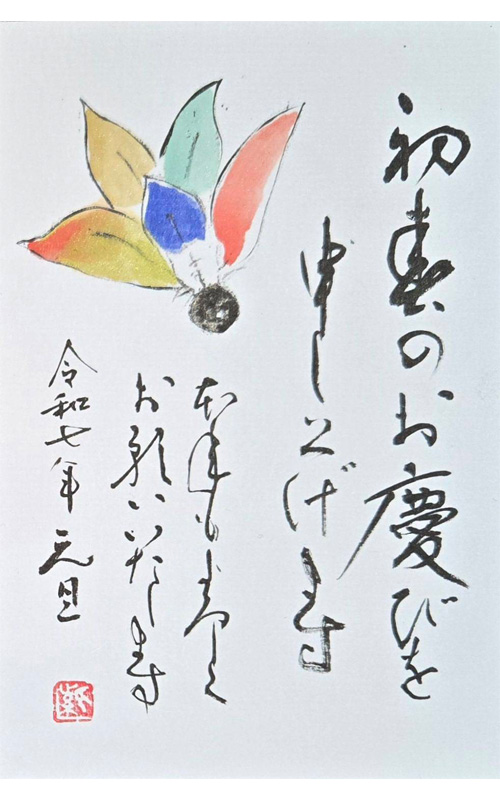 初春のお慶びを
申し上げます
本年もよろしく
お願いいたします
令和七年 元旦